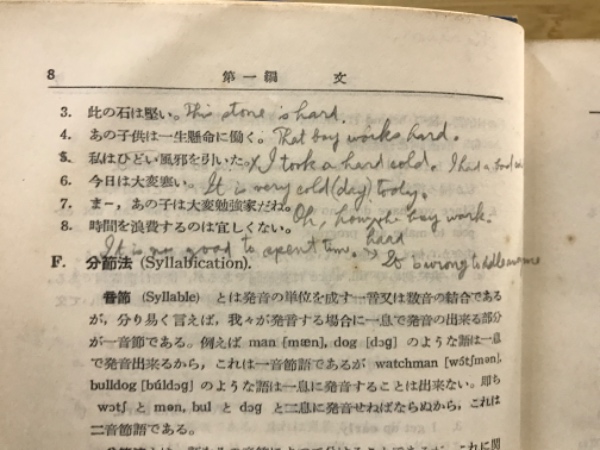 8 第一編 文
3. 此の石は堅い。 This stone is hard.
4. あの子供は一生懸命に働く。 That boy works hard.
5. 私はひどい風邪を引いた。 I took a hard cold. I had a bad
6. 今日は大変寒い。 It is very cold (day) today.
7. まー，あの子は大変勉強家だね。 Oh, how the boy work.
hard
8. 時間を浪費するのは宜しくない。
It is no good to spent time. It is wrong to
F. 分節法 (Syllabication).
音節 (Syllable) とは発音の単位を成す一音又は数音の結合である
が，分り易く言えば，我々が発音する場合に一息で発音の出来る部分
が一音節である。例えば man [mæn], dog [dɔg] のような語は一息
で発音出来るから，これは一音節語であるが watchman [wɔ́tʃmən],
bulldog [búldɔg] のような語は一息に発音することは出来ない。即ち
wɔtʃ と mən, bul と dɔg と二息に発音せねばならぬから，これは
二音節語である。